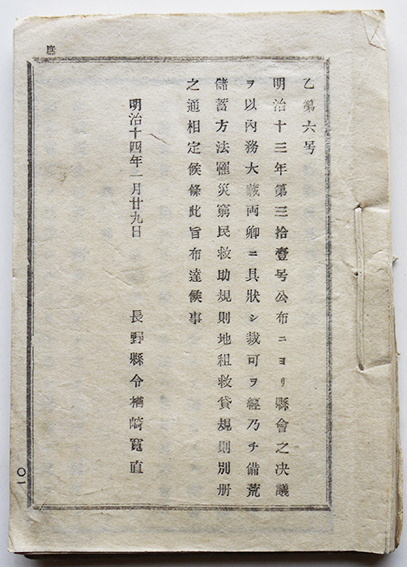 乙第六号
明治十三年第三拾壹号公布ニヨリ縣會之决議
ヲ以內務大藏両卿ニ具狀シ裁可ヲ經乃チ備荒
儲蓄方法罹災窮民救助規則地租救貸規則別册
之通相定候條此旨布達候事
明治十四年一月廿九日
長野縣令楢崎寬直
庶
一〇